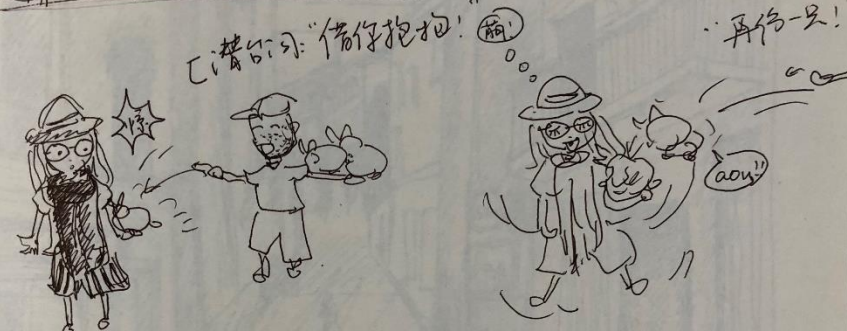 [潜台词:"借你抱抱!"
惊
萌!
∵再给一只!
aou!!